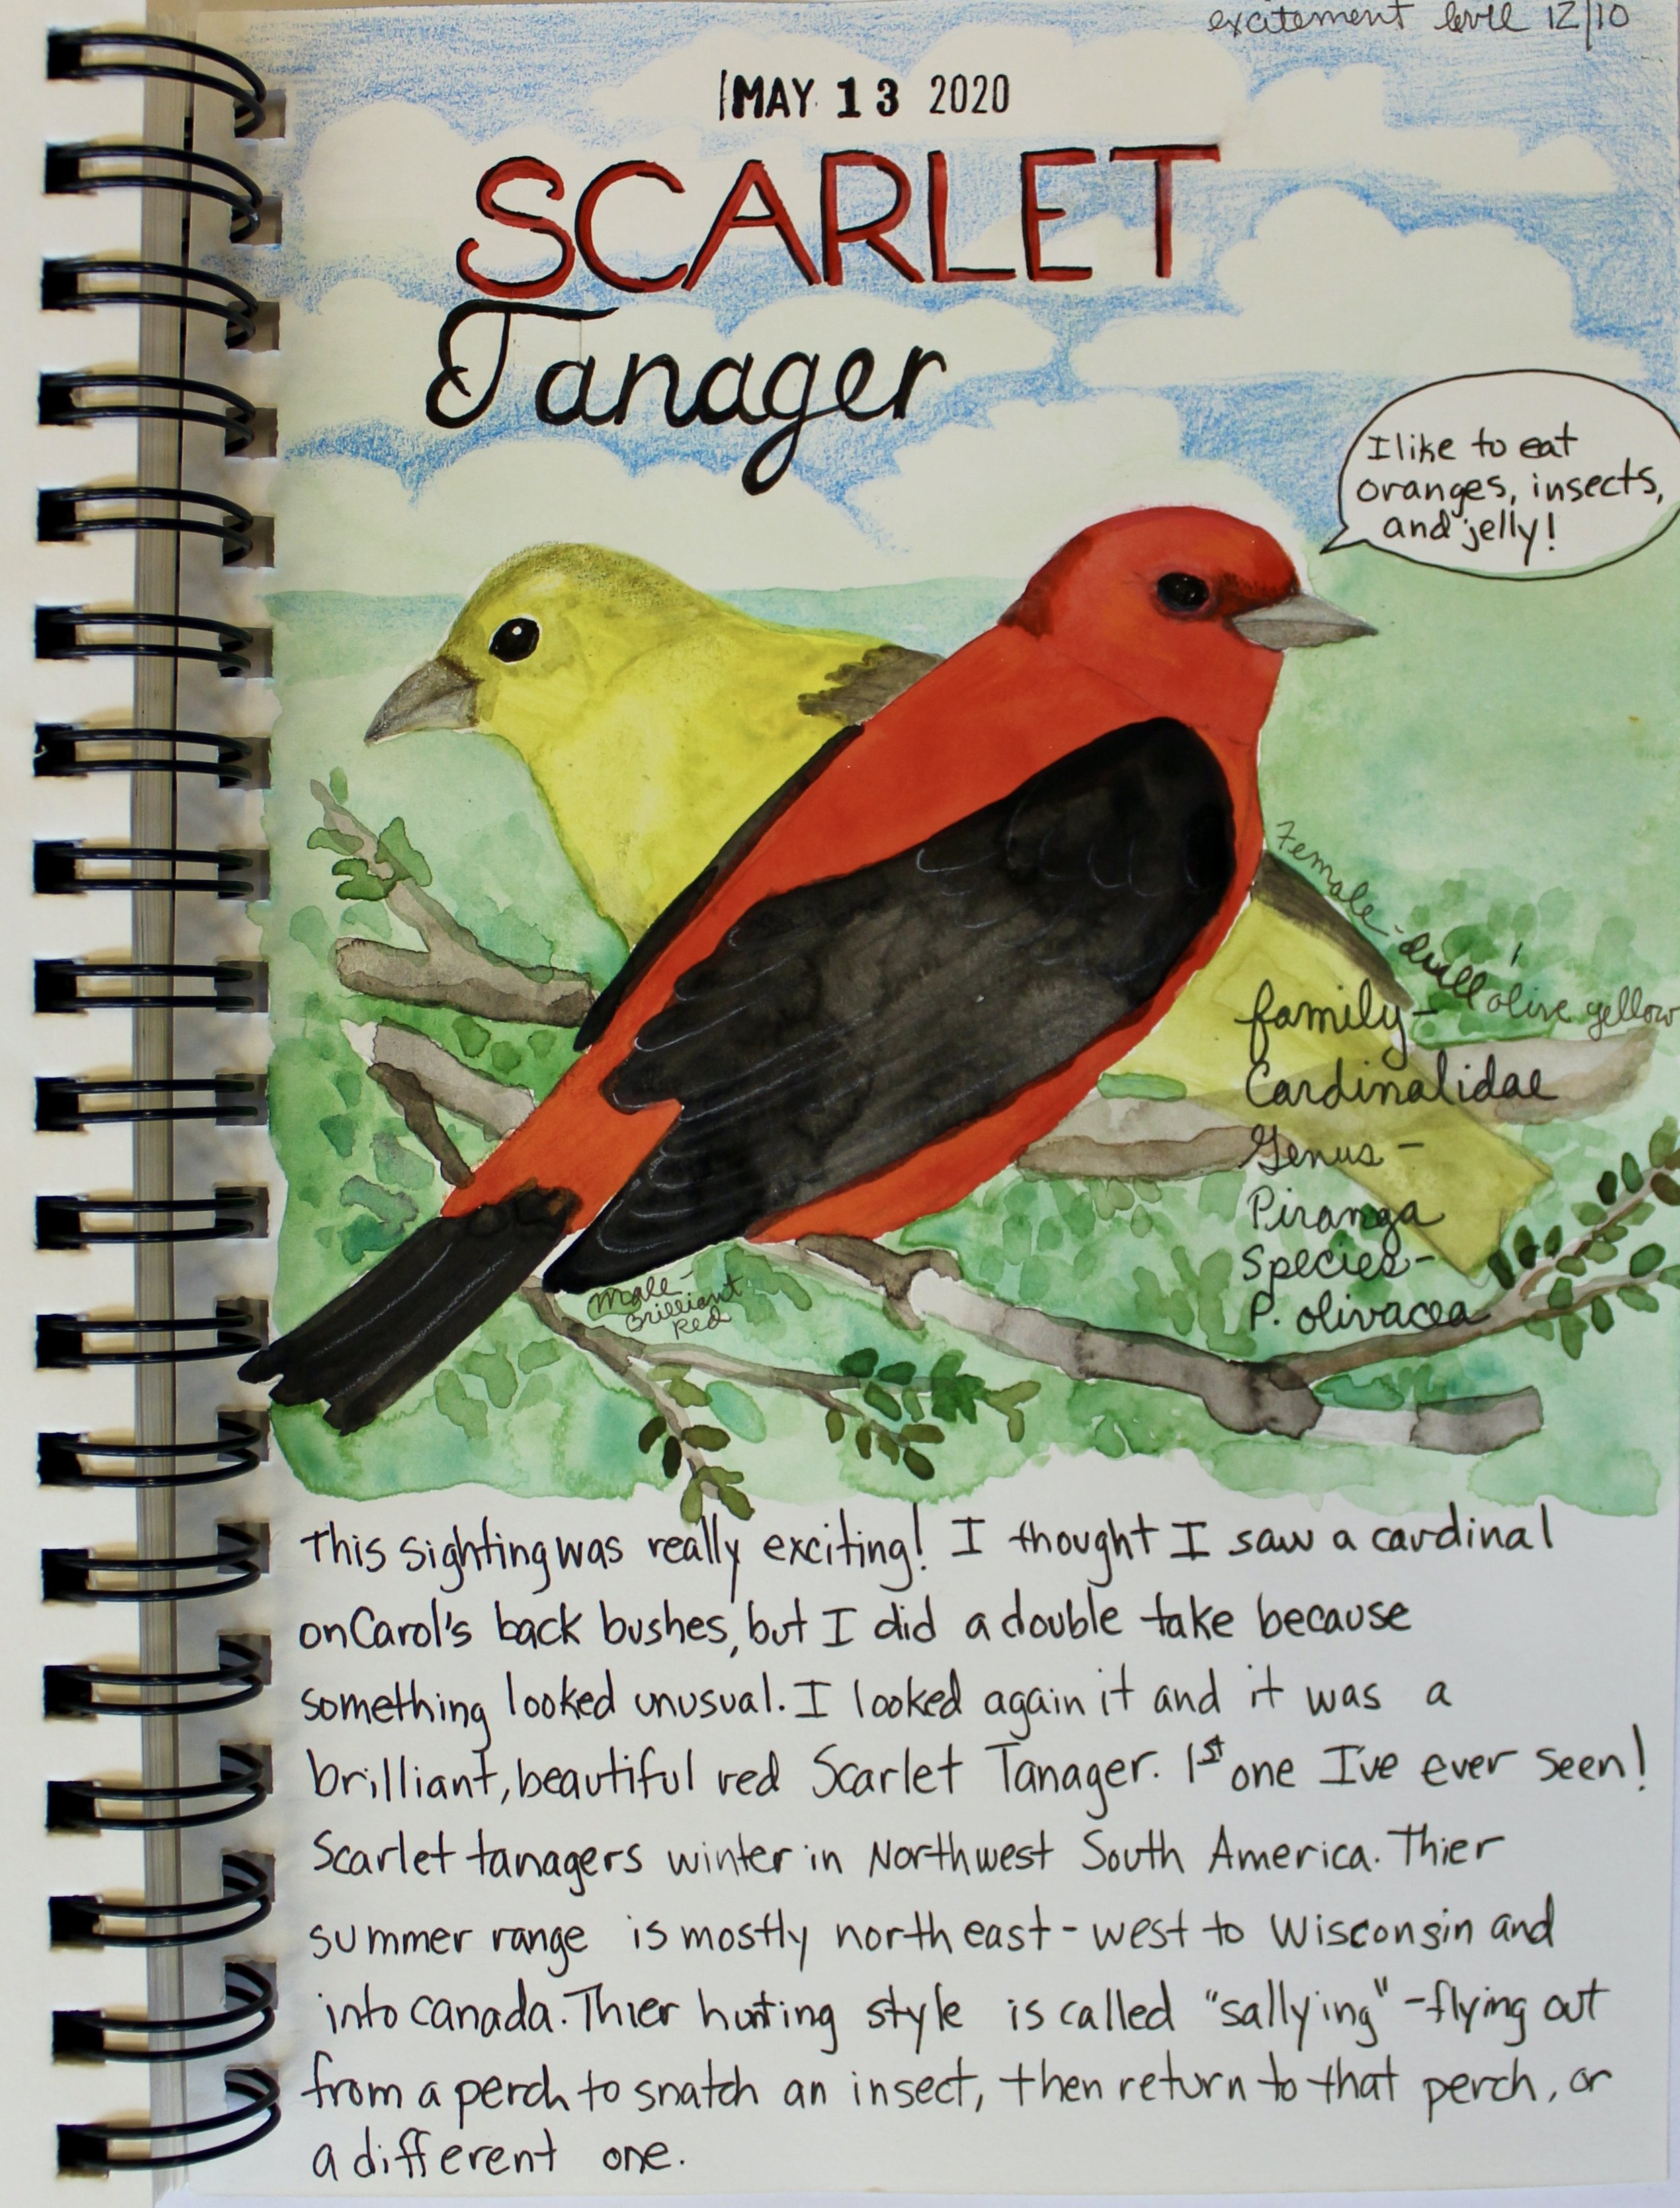 excitement level 12/10
MAY 13 2020
SCARLET
Tanager
I like to eat
oranges, insects,
and jelly!
Female - dull olive yellow
family -
Cardinalidae
Genus -
Piranga
Species -
P. olivacea
male -
Brilliant
Red
This sighting was really exciting! I thought I saw a cardinal
on Carol's back bushes, but I did a double take because
something looked unusual. I looked again it and it was a
brilliant, beautiful red Scarlet Tanager. 1st one I've ever seen!
Scarlet tanagers winter in Northwest South America. Thier
summer range is mostly northeast - west to Wisconsin and
into Canada. Thier hunting style is called "sallying" - flying out
from a perch to snatch an insect, then return to that perch, or
a different one.